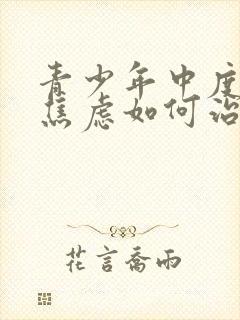 青少年中度
焦虑如何治
花言喬雨